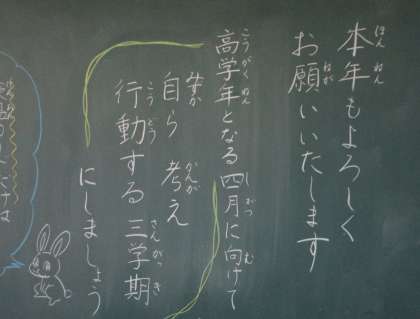 本年もよろしく
お願いいたします
高学年となる四月に向けて
自ら考え
行動する三学期
にしましょう